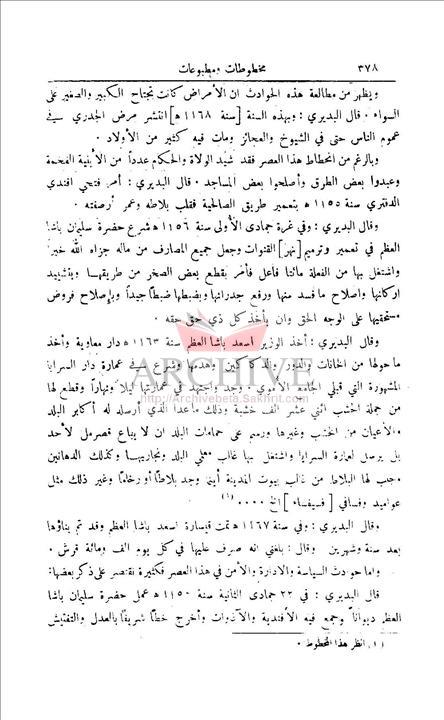 مخطوطات ومطبوعات ٣٧٨
ويظهر من مطالعة هذه الحوادث ان الأمراض كانت تجتاح الكبير والصغير على
السواء ٠ قال البديري : وبهذه السنة [ سنة ١١٦٨ ه ] انتشر مرض الجدري في
عموم الناس حتى في الشيوخ والعجائز ومات فيه كثير من الأولاد ٠
وبالرغم من انحطاط هذا العصر فقد شيد الولاة والحكام عدداً من الأبنية الفخمة
وعبدوا بعض الطرق وأصلحوا بعض المساجد ٠ قال البديري : أمر فتحي افندي
الدفتري سنة ١١٥٥ ه بتعمير طريق الصالحية فقلب بلاطه وعمر أرصفته ٠
وقال البديري : وفي غرة جمادى الأولى سنة ١١٥٦ ه شرع حضرة سليمان باشا
العظم في تعمير وترميم [ نهر ] القنوات وجعل جميع المصارف من ماله جزاه الله خيراً
واشتغل بها من الفعلة مائتا فاعل فأمر بقطع بعض الصخر من طريقها وبتشييد
اركانها واصلاح ما فسد منها ورفع جدرانها وبضبطها ضبطاً جيداً وبإصلاح فروض
مستحقيها على الوجه الحق وان يأخذ كل ذي حق حقه ٠
وقال البديري : أخذ الوزير اسعد باشا العظم سنة ١١٦٣ ه دار معاوية وأخذ
ما حولها من الخانات والدور والدكاكين وهدمها وشرع في عمارة دار السرايا
المشهورة التي قبلي الجامع الأموي ٠ وجد واجتهد في عمارتها ليلا ونهاراً وقطع لها
من جملة الخشب اثني عشر الف خشبة وذلك ما عدا الذي أرسله له أكابر البلد
والأعيان من الخشب وغيرها ورسم على حمامات البلد ان لا يباع قصرمل لأحد
بل يرسل لعمارة السرايا واشتغل بها غالب معلمي البلد ونجاريها وكذلك الدهانين
وجلب لها البلاط من غالب بيوت المدينة أينما وجد بلاطاً أو رخاماً وغير ذلك مثل
عواميد وفساقي [ فسيفساء ] الخ ٠٠٠٠ (١)
وقال البديري : وفي سنة ١١٦٧ ه تمت قيسارية اسعد باشا العظم وقد تم بناؤها
بعد سنة وشهرين ٠ وقال : بلغني انه صرف عليها في كل يوم الف ومائة قرش ٠
واما حوادث السياسة والادارة والأمن في هذا العصر فكثيرة نقتصر على ذكر بعضها:
قال البديري : في ٢٢ جمادى الثانية سنة ١١٥٠ ه عمل حضرة سليمان باشا
العظم ديواناً وجمع فيه الأفندية والآغوات وأخرج خطاً شريفاً بالعدل والتفتيش
(١) انظر هذا المخطوط ٠
ARCHIVE
http://Archivebeta.Sakhrit.com